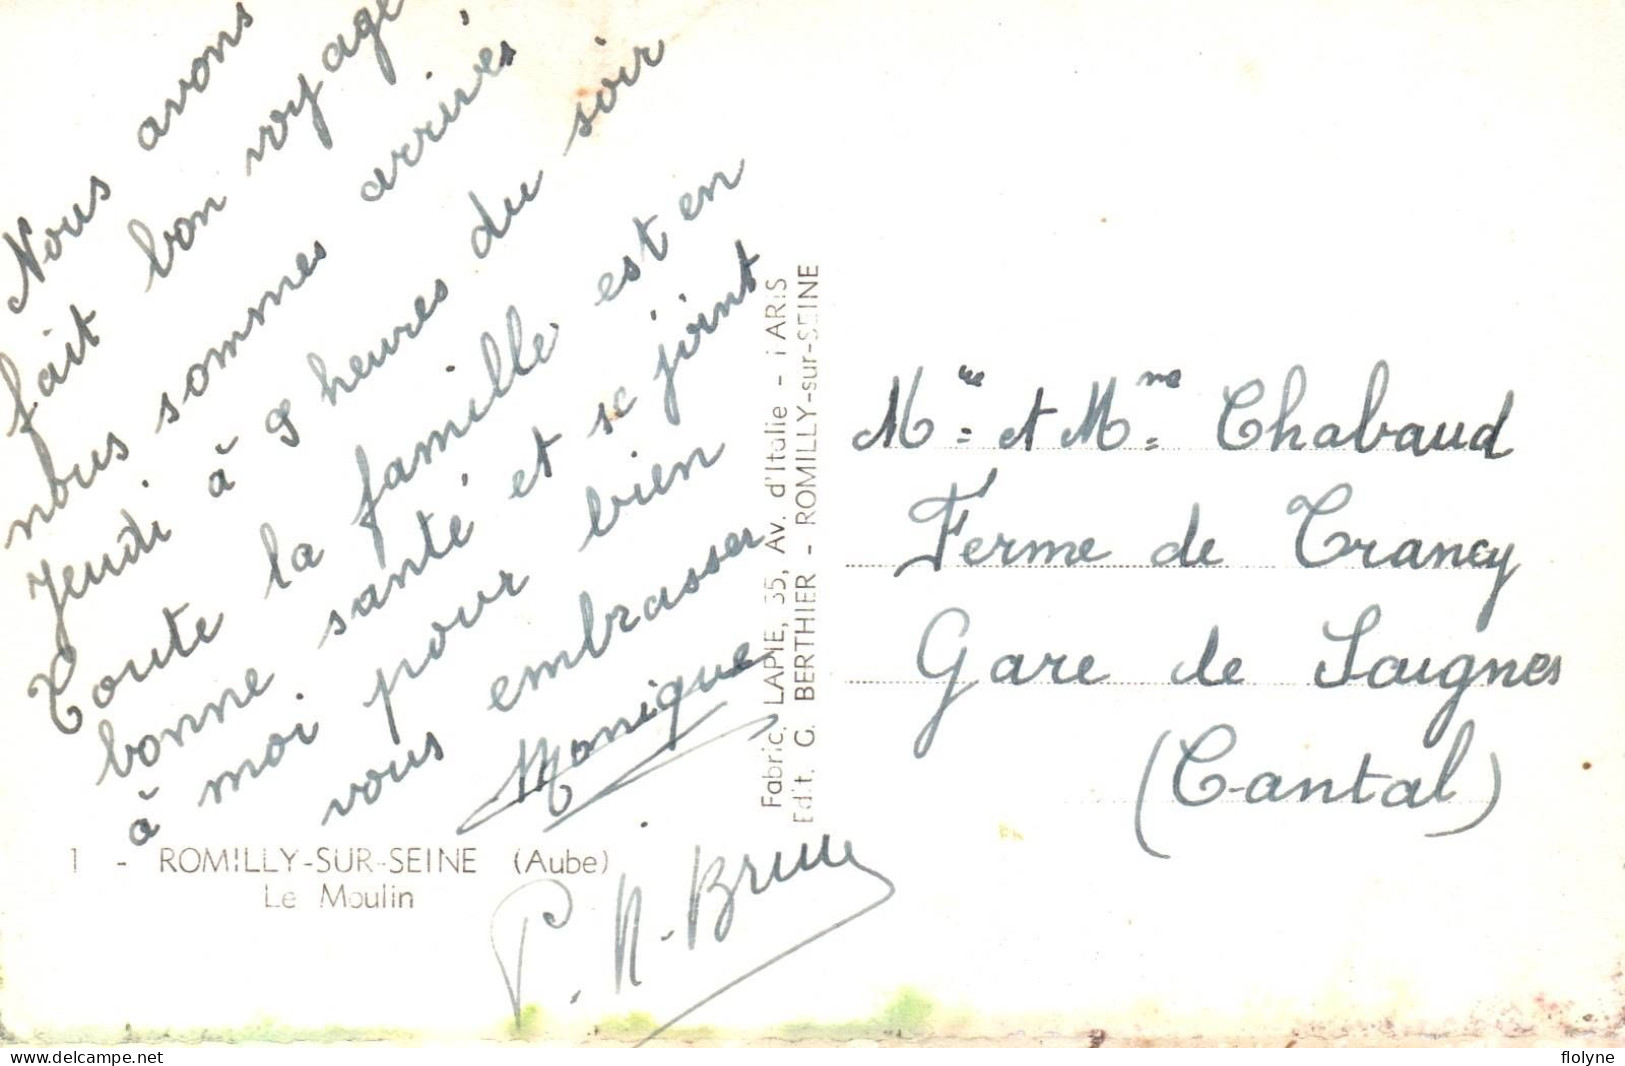 Nous avons
fait bon voyage
nous sommes arrivés
Jeudi à 9 heures du soir
Toute la famille est en
bonne santé et se joint
à moi pour bien
vous embrasser
Monique
1 - ROMILLY-SUR-SEINE (Aube)
Le Moulin
Fabric. LAPIE, 35, Av. d'Italie - PARIS
Edit. G. BERTHIER - ROMILLY-sur-SEINE
et Mme Chabaud
Ferme de Trancy
Gare de Saignes
(Cantal)
flolyne
www.delcampe.net